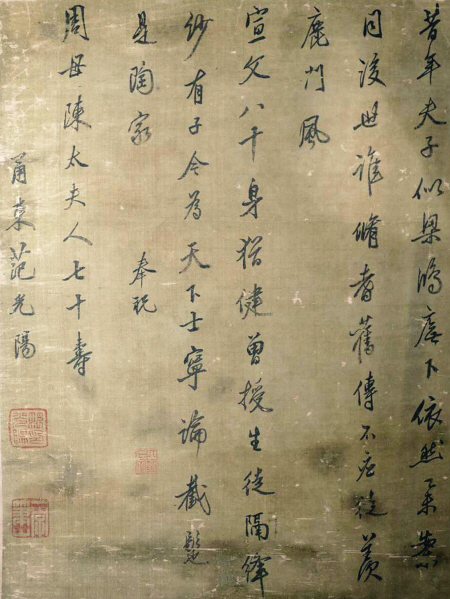 昔年夫子似梁鴻廡下依然舉案
同後世誰脩耆舊傳不應徒羨
鹿門風
宣文八十身猶健曾授生徒隔絳
紗有子今為天下士寧論截髮
是陶家 奉祝
周母陳太夫人七十壽
甬東范光陽